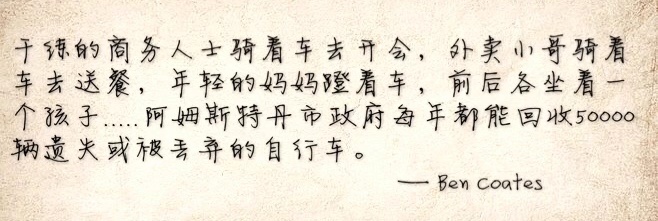 干练的商务人士骑着车去开会，外卖小哥骑着
车去送餐，年轻的妈妈蹬着车，前后各坐着一
个孩子.....阿姆斯特丹市政府每年都能回收50000
辆遗失或被丢弃的自行车。
— Ben Coates